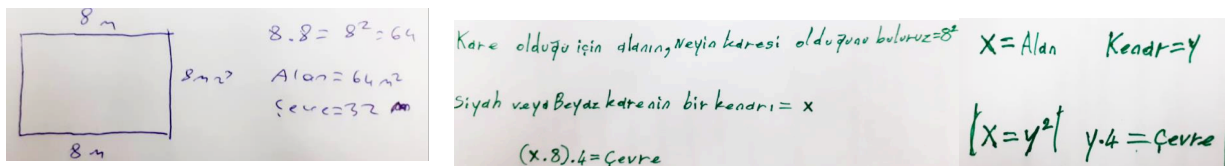 8 m
8.8 = 8² = 64
Alan = 64 m²
Çevre = 32 m
8 m
Kare olduğu için alanın, Neyin karesi olduğunu buluruz = 8²
Siyah veya Beyaz karenin bir kenarı = x
(x.8).4 = Çevre
X = Alan Kenar = y
[x = y²] y.4 = Çevre